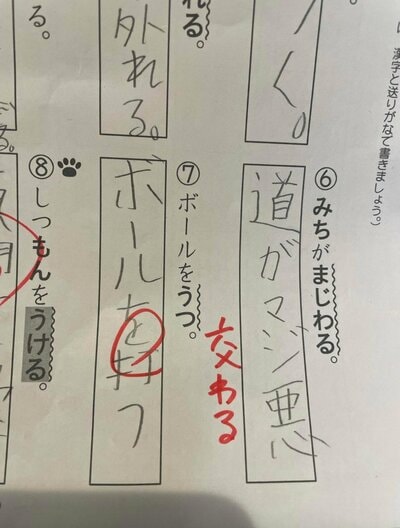 漢字と送りがなで書きましょう。）
く。
⑥みちがまじわる。
道がマジ悪
交わる
れる。
外れる。
⑦ボールをうつ。
ボールを打つ
る。
⑧しつもんをうける。